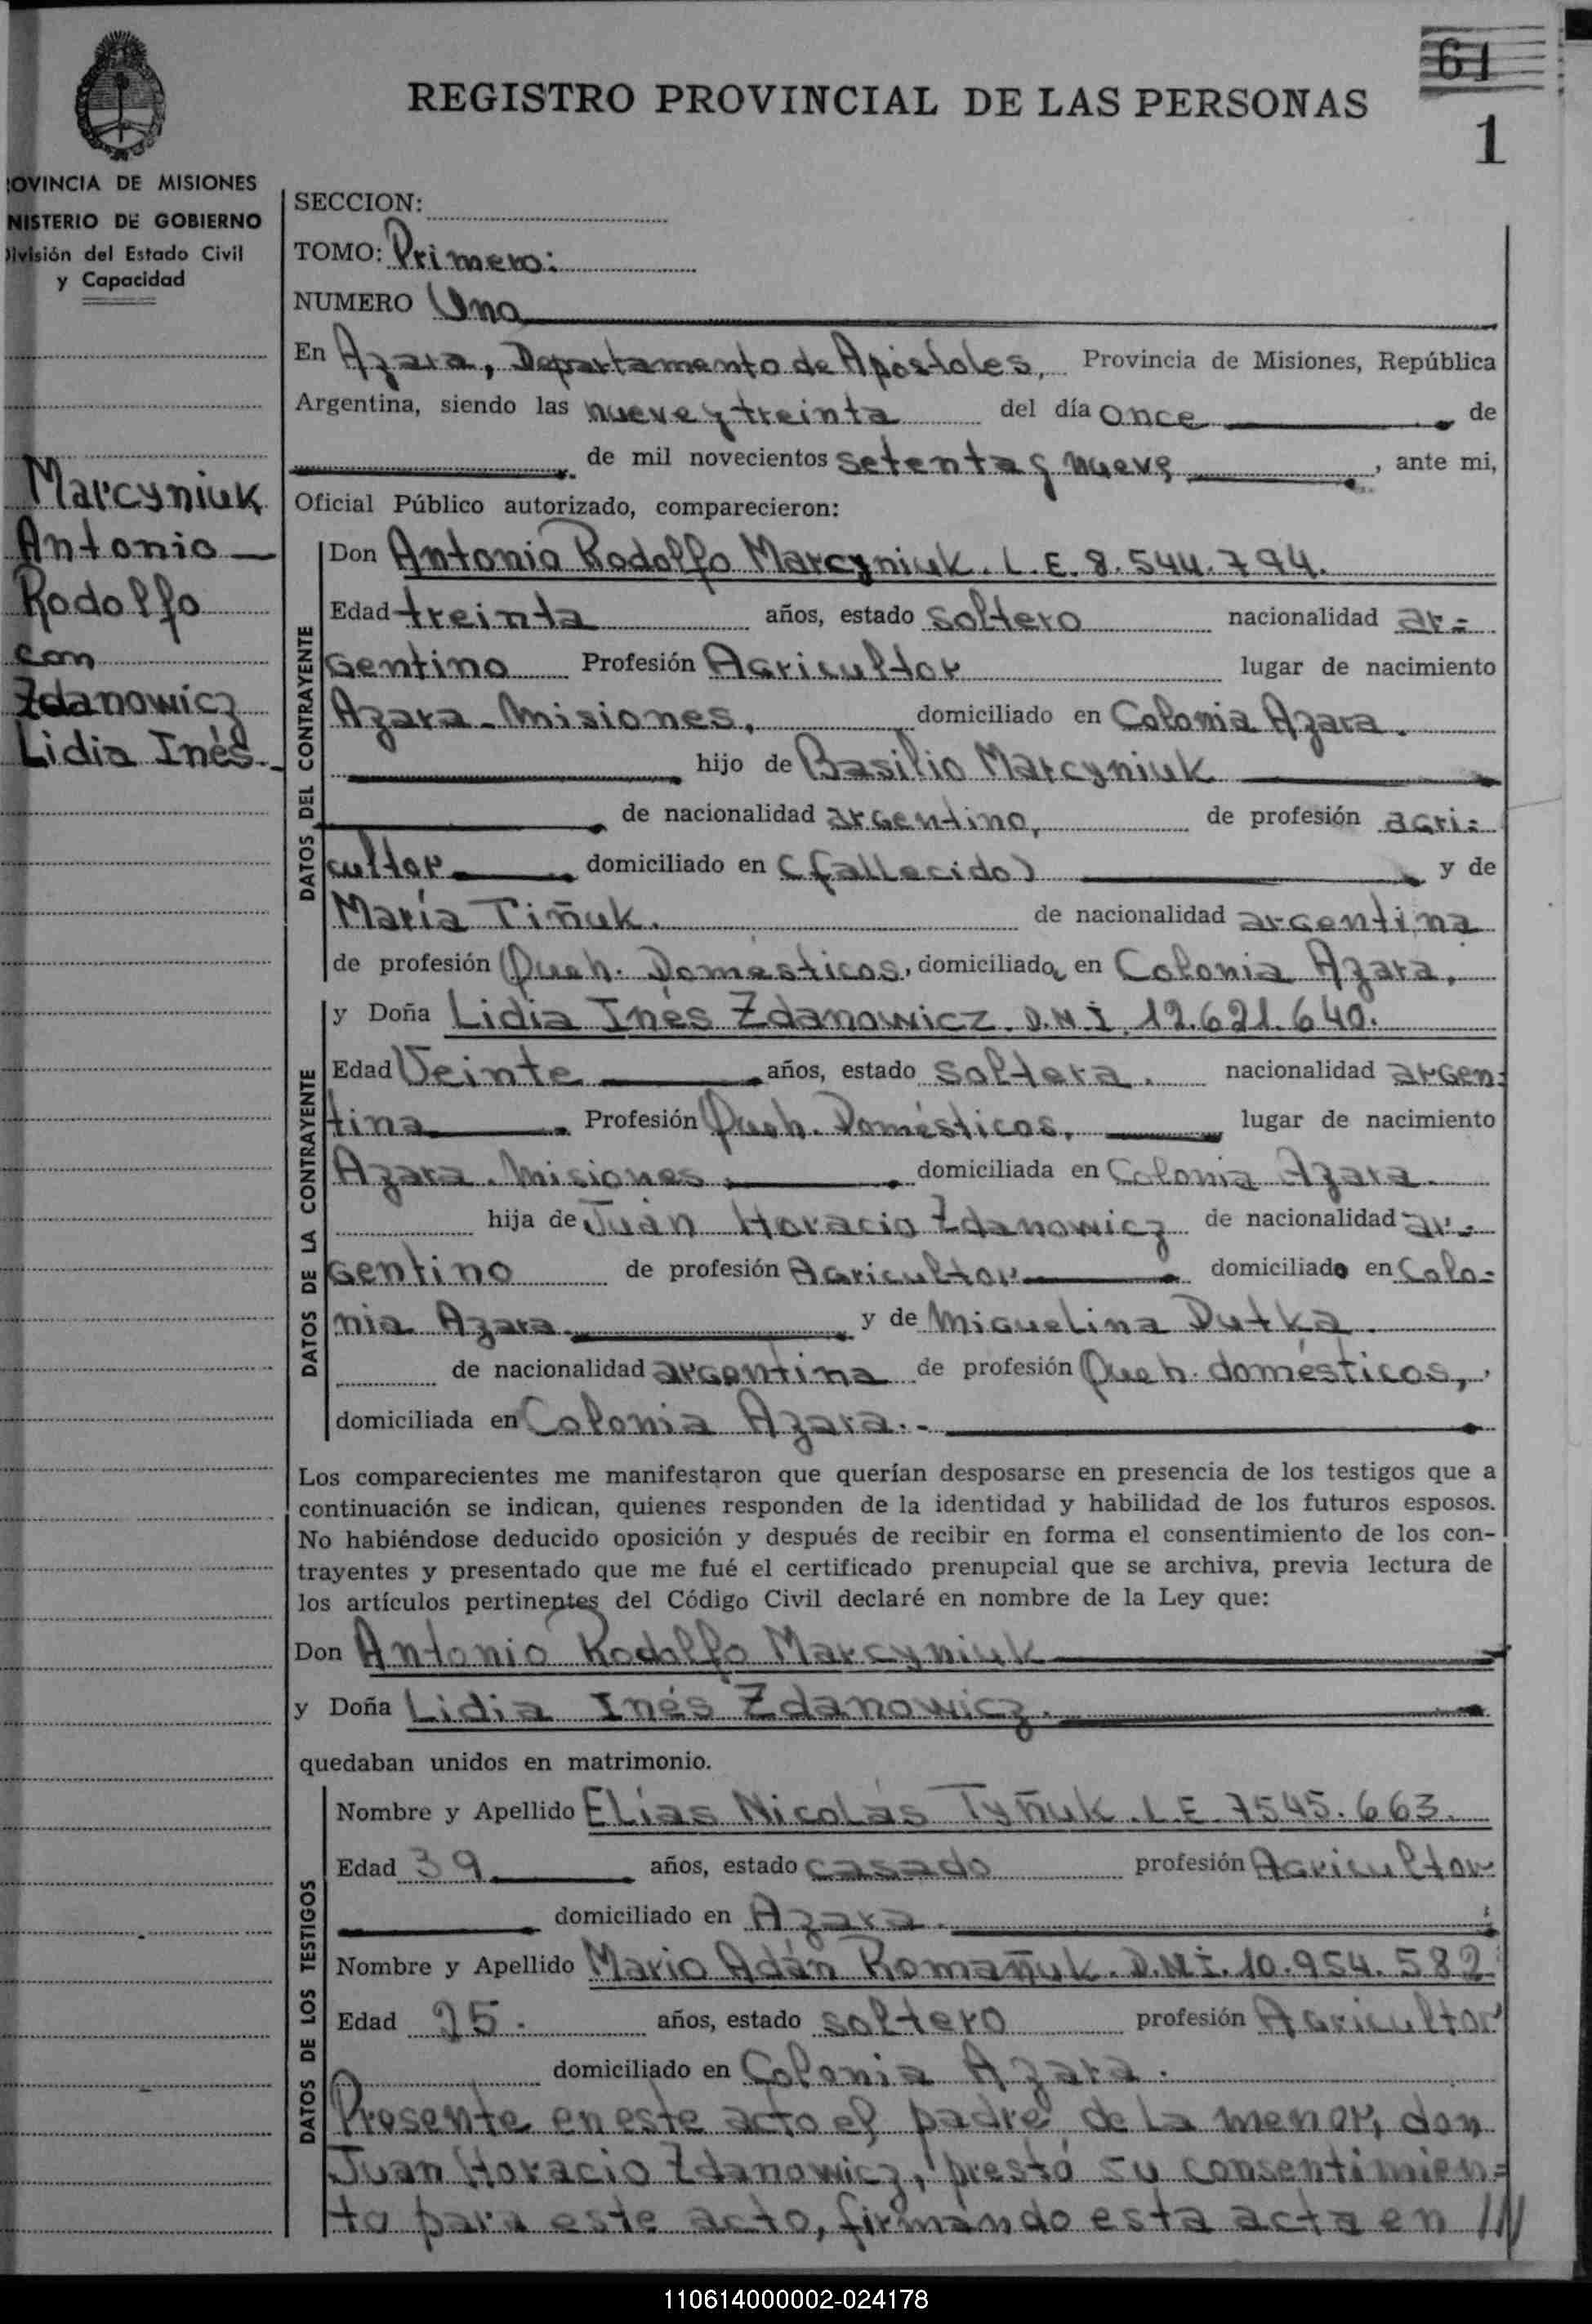 61
REGISTRO PROVINCIAL DE LAS PERSONAS
1
OVINCIA DE MISIONES
NISTERIO DE GOBIERNO
División del Estado Civil
y Capacidad
Marcyniuk
Antonio
Rodolfo
con
Zdanowicz
Lidia Inés.
SECCION:
TOMO: Primero:
NUMERO Uno
En Azara, Departamento de Apóstoles, Provincia de Misiones, República
Argentina, siendo las nueve y treinta del día once de
de mil novecientos setenta y nueve, ante mi,
Oficial Público autorizado, comparecieron:
DATOS DEL CONTRAYENTE
Don Antonio Rodolfo Marcyniuk. L.E. 8.544.794.
Edad treinta años, estado soltero nacionalidad ar=
gentino Profesión Agricultor lugar de nacimiento
Azara-Misiones, domiciliado en Colonia Azara.
hijo de Basilio Marcyniuk
de nacionalidad argentino, de profesión agri=
cultor domiciliado en (fallecido) y de
María Tiñuk. de nacionalidad argentina
de profesión Queh. Domésticos, domiciliada en Colonia Azara,
DATOS DE LA CONTRAYENTE
y Doña Lidia Inés Zdanowicz. D.N.I. 12.621.640.
Edad Veinte años, estado soltera. nacionalidad argen=
tina Profesión Queh. Domésticos, lugar de nacimiento
Azara. Misiones, domiciliada en Colonia Azara.
hija de Juan Horacio Zdanowicz de nacionalidad ar=
gentino de profesión Agricultor domiciliado en Colo=
nia Azara y de Miguelina Dutka.
de nacionalidad argentina de profesión Queh. domésticos,
domiciliada en Colonia Azara.-
Los comparecientes me manifestaron que querían desposarse en presencia de los testigos que a
continuación se indican, quienes responden de la identidad y habilidad de los futuros esposos.
No habiéndose deducido oposición y después de recibir en forma el consentimiento de los con-
trayentes y presentado que me fué el certificado prenupcial que se archiva, previa lectura de
los artículos pertinentes del Código Civil declaré en nombre de la Ley que:
Don Antonio Rodolfo Marcyniuk
y Doña Lidia Inés Zdanowicz.
quedaban unidos en matrimonio.
DATOS DE LOS TESTIGOS
Nombre y Apellido Elías Nicolás Tyñuk. L.E. 7545.663.
Edad 39 años, estado casado profesión Agricultor
domiciliado en Azara.
Nombre y Apellido Mario Adán Romañuk. D.N.I. 10.954.582
Edad 25. años, estado soltero profesión Agricultor
domiciliado en Colonia Azara.
Presente en este acto el padre de la menor, don
Juan Horacio Zdanowicz, prestó su consentimien=
to para este acto, firmando esta acta en ///
110614000002-024178